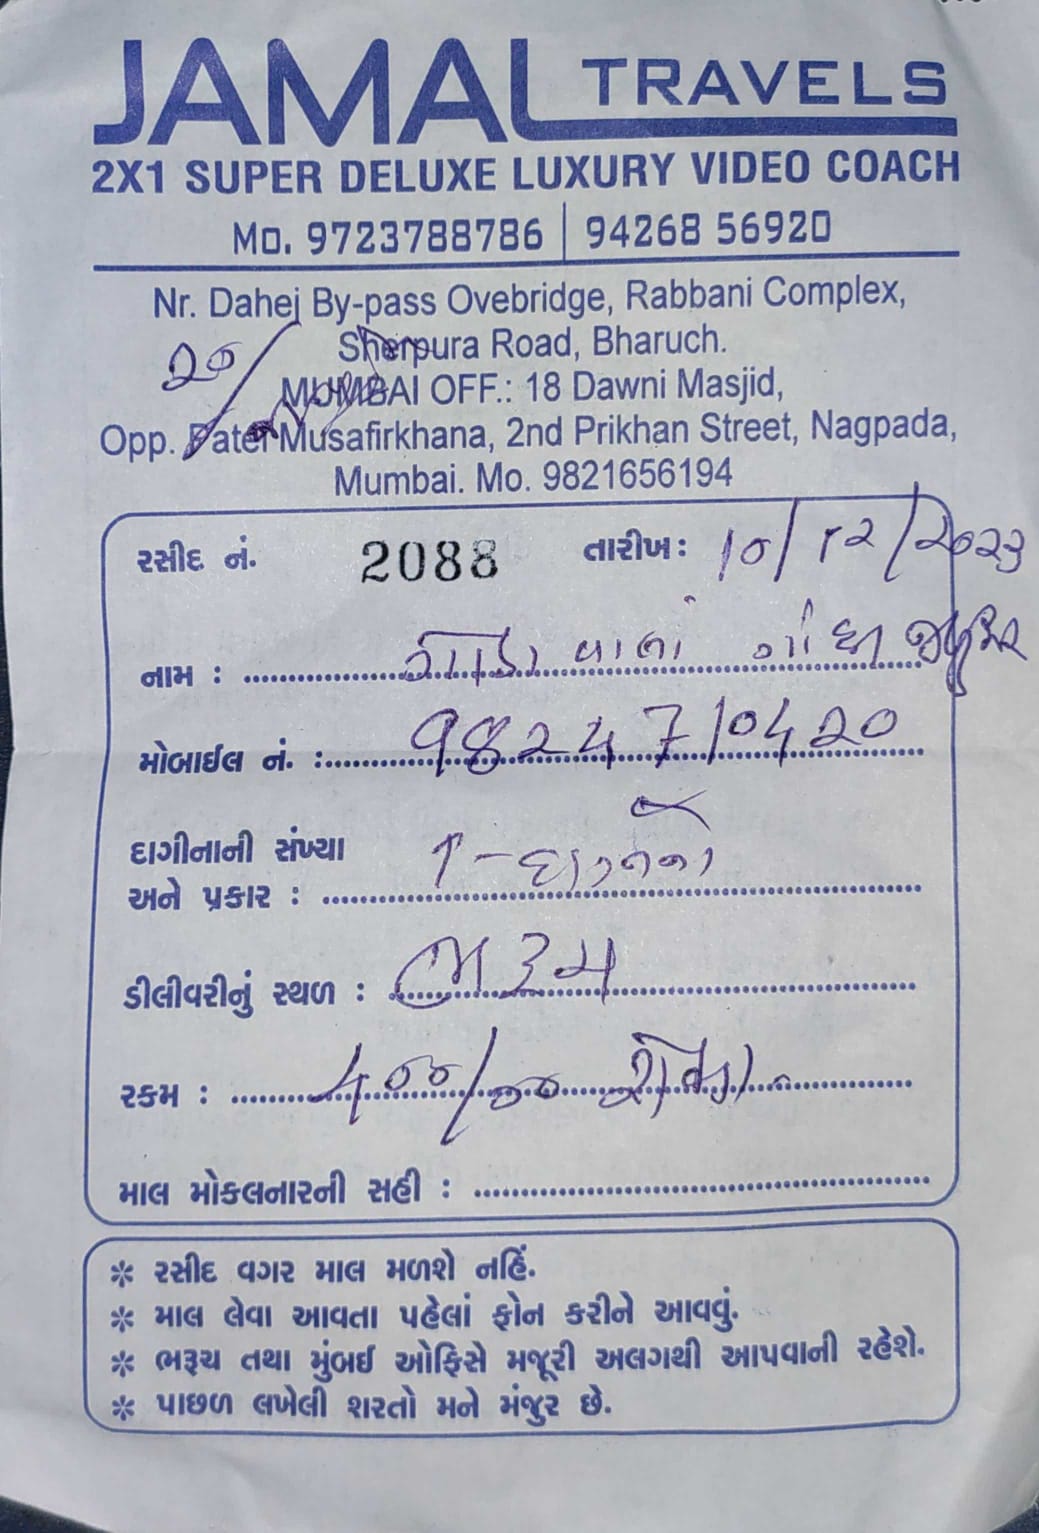 JAMAL TRAVELS
2X1 SUPER DELUXE LUXURY VIDEO COACH
Mo. 9723788786 | 94268 56920
Nr. Dahej By-pass Ovebridge, Rabbani Complex,
Sherpura Road, Bharuch.
MUMBAI OFF.: 18 Dawni Masjid,
Opp. Patel Musafirkhana, 2nd Prikhan Street, Nagpada,
Mumbai. Mo. 9821656194
રસીદ નં. 2088 તારીખ: 10/12/2023
નામ :
મોબાઈલ નં. : 9824710420
દાગીનાની સંખ્યા
અને પ્રકાર : ૧ -
ડીલીવરીનું સ્થળ : ભરૂચ
રકમ : 400/00
માલ મોકલનારની સહી :
* રસીદ વગર માલ મળશે નહિં.
* માલ લેવા આવતા પહેલાં ફોન કરીને આવવું.
* ભરૂચ તથા મુંબઈ ઓફિસે મજૂરી અલગથી આપવાની રહેશે.
* પાછળ લખેલી શરતો મને મંજુર છે.